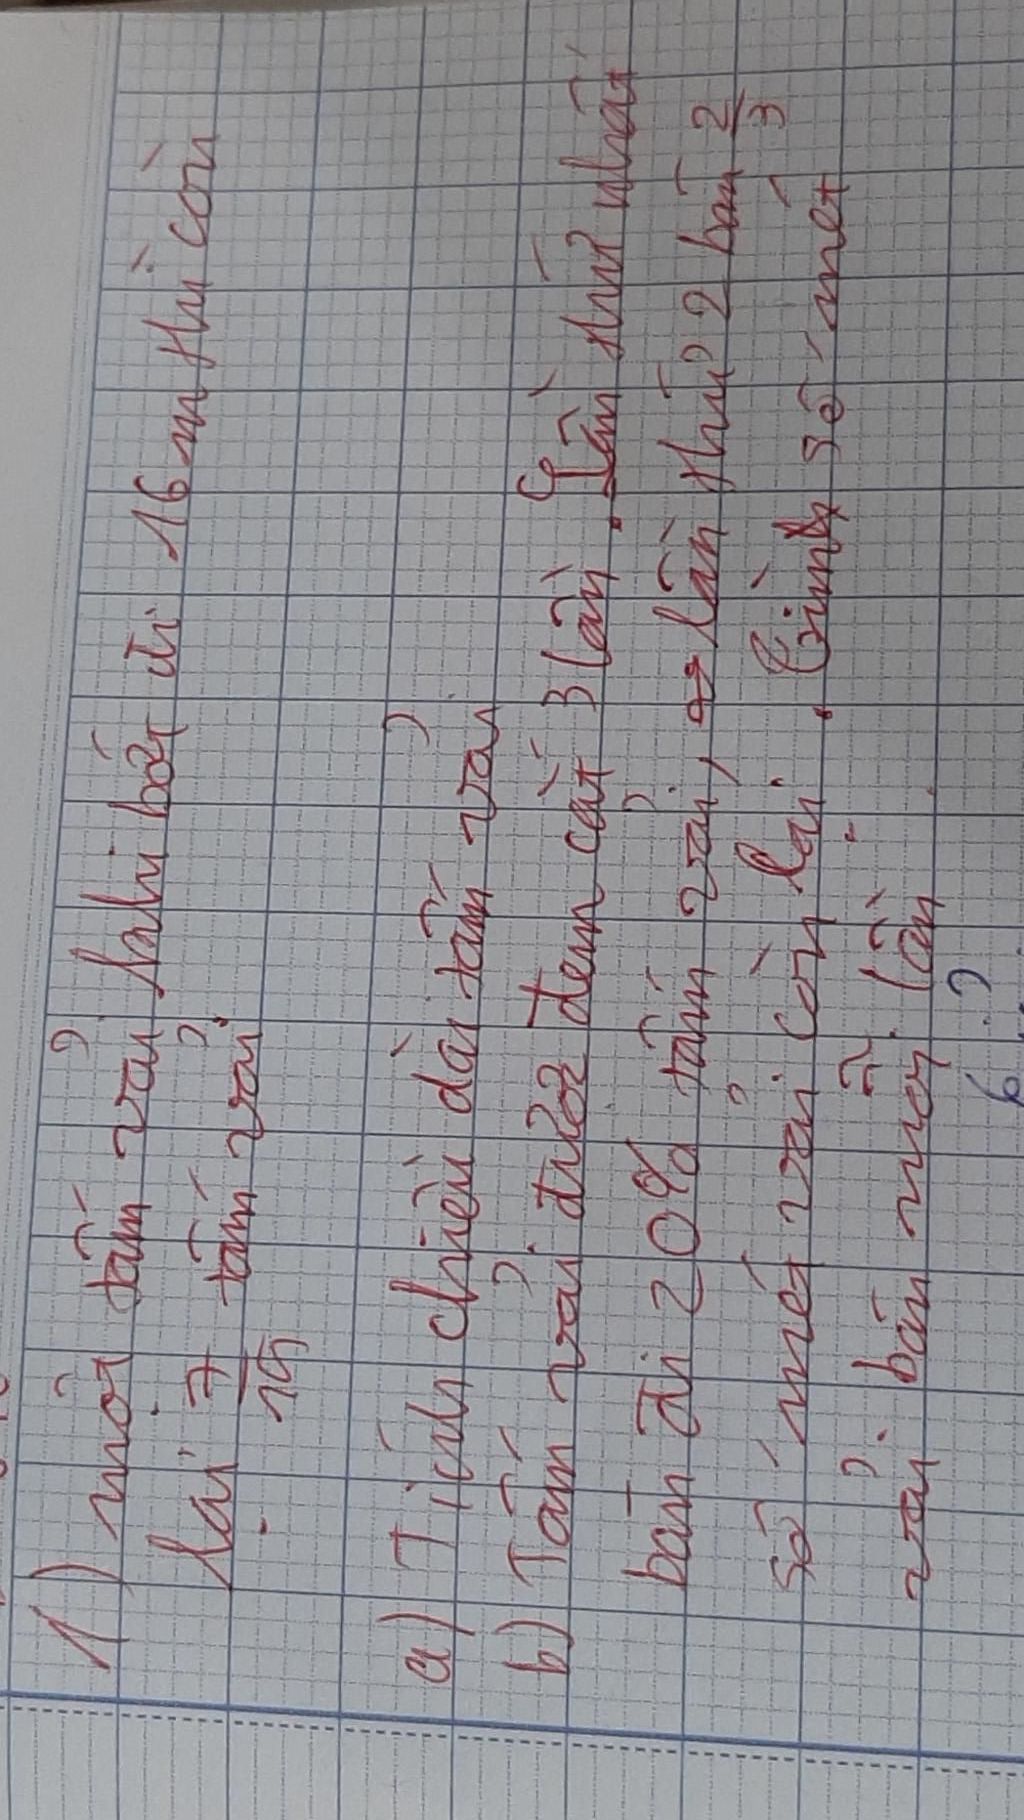 1) một tấm vải nếu bớt đi 16 m thì còn
lại 7/15 tấm vải
a) Tính chiều dài tấm vải
b) Tấm vải được đem cắt 3 lần. Lần thứ nhất
bán đi 20% tấm vải, lần thứ 2 bán 2/3
số mét vải còn lại. Tính số mét
vải bán mỗi lần